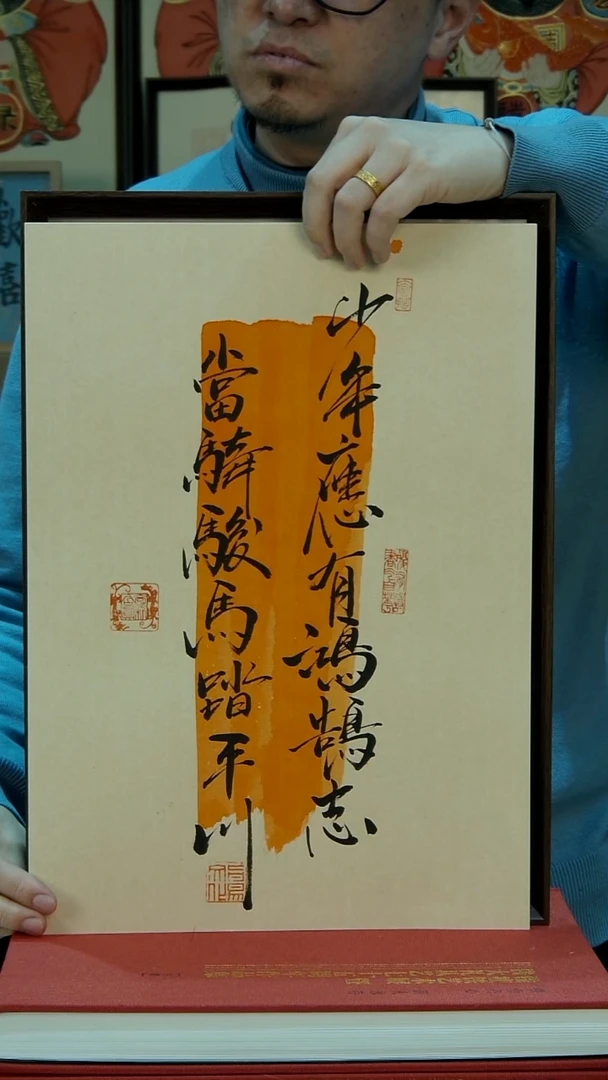 少年應有鴻鵠志
當騎駿馬踏平川
歡
喜